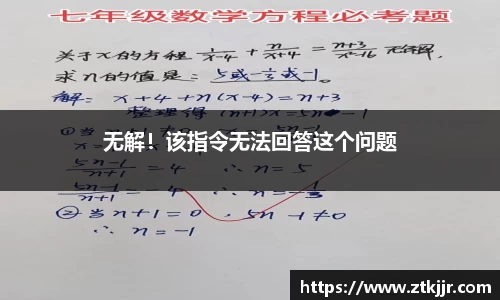 七年级数学方程必考题
关于x的方程 1/(x-4) + n/(x+4) = (n+3)/(x²-16) 无解,
求n的值是: 5或-1/3或-1。
解: x+4+n(x-4)=n+3
整理得 (n+1)x=5n-1
无解！该指令无法回答这个问题
(5n-1)/(n+1) = 4 ∴ n=5
= -4 ∴ n=-1/3
②当n+1=0, 5n-1≠0
∴ n=-1
https://www.ztkjjr.com